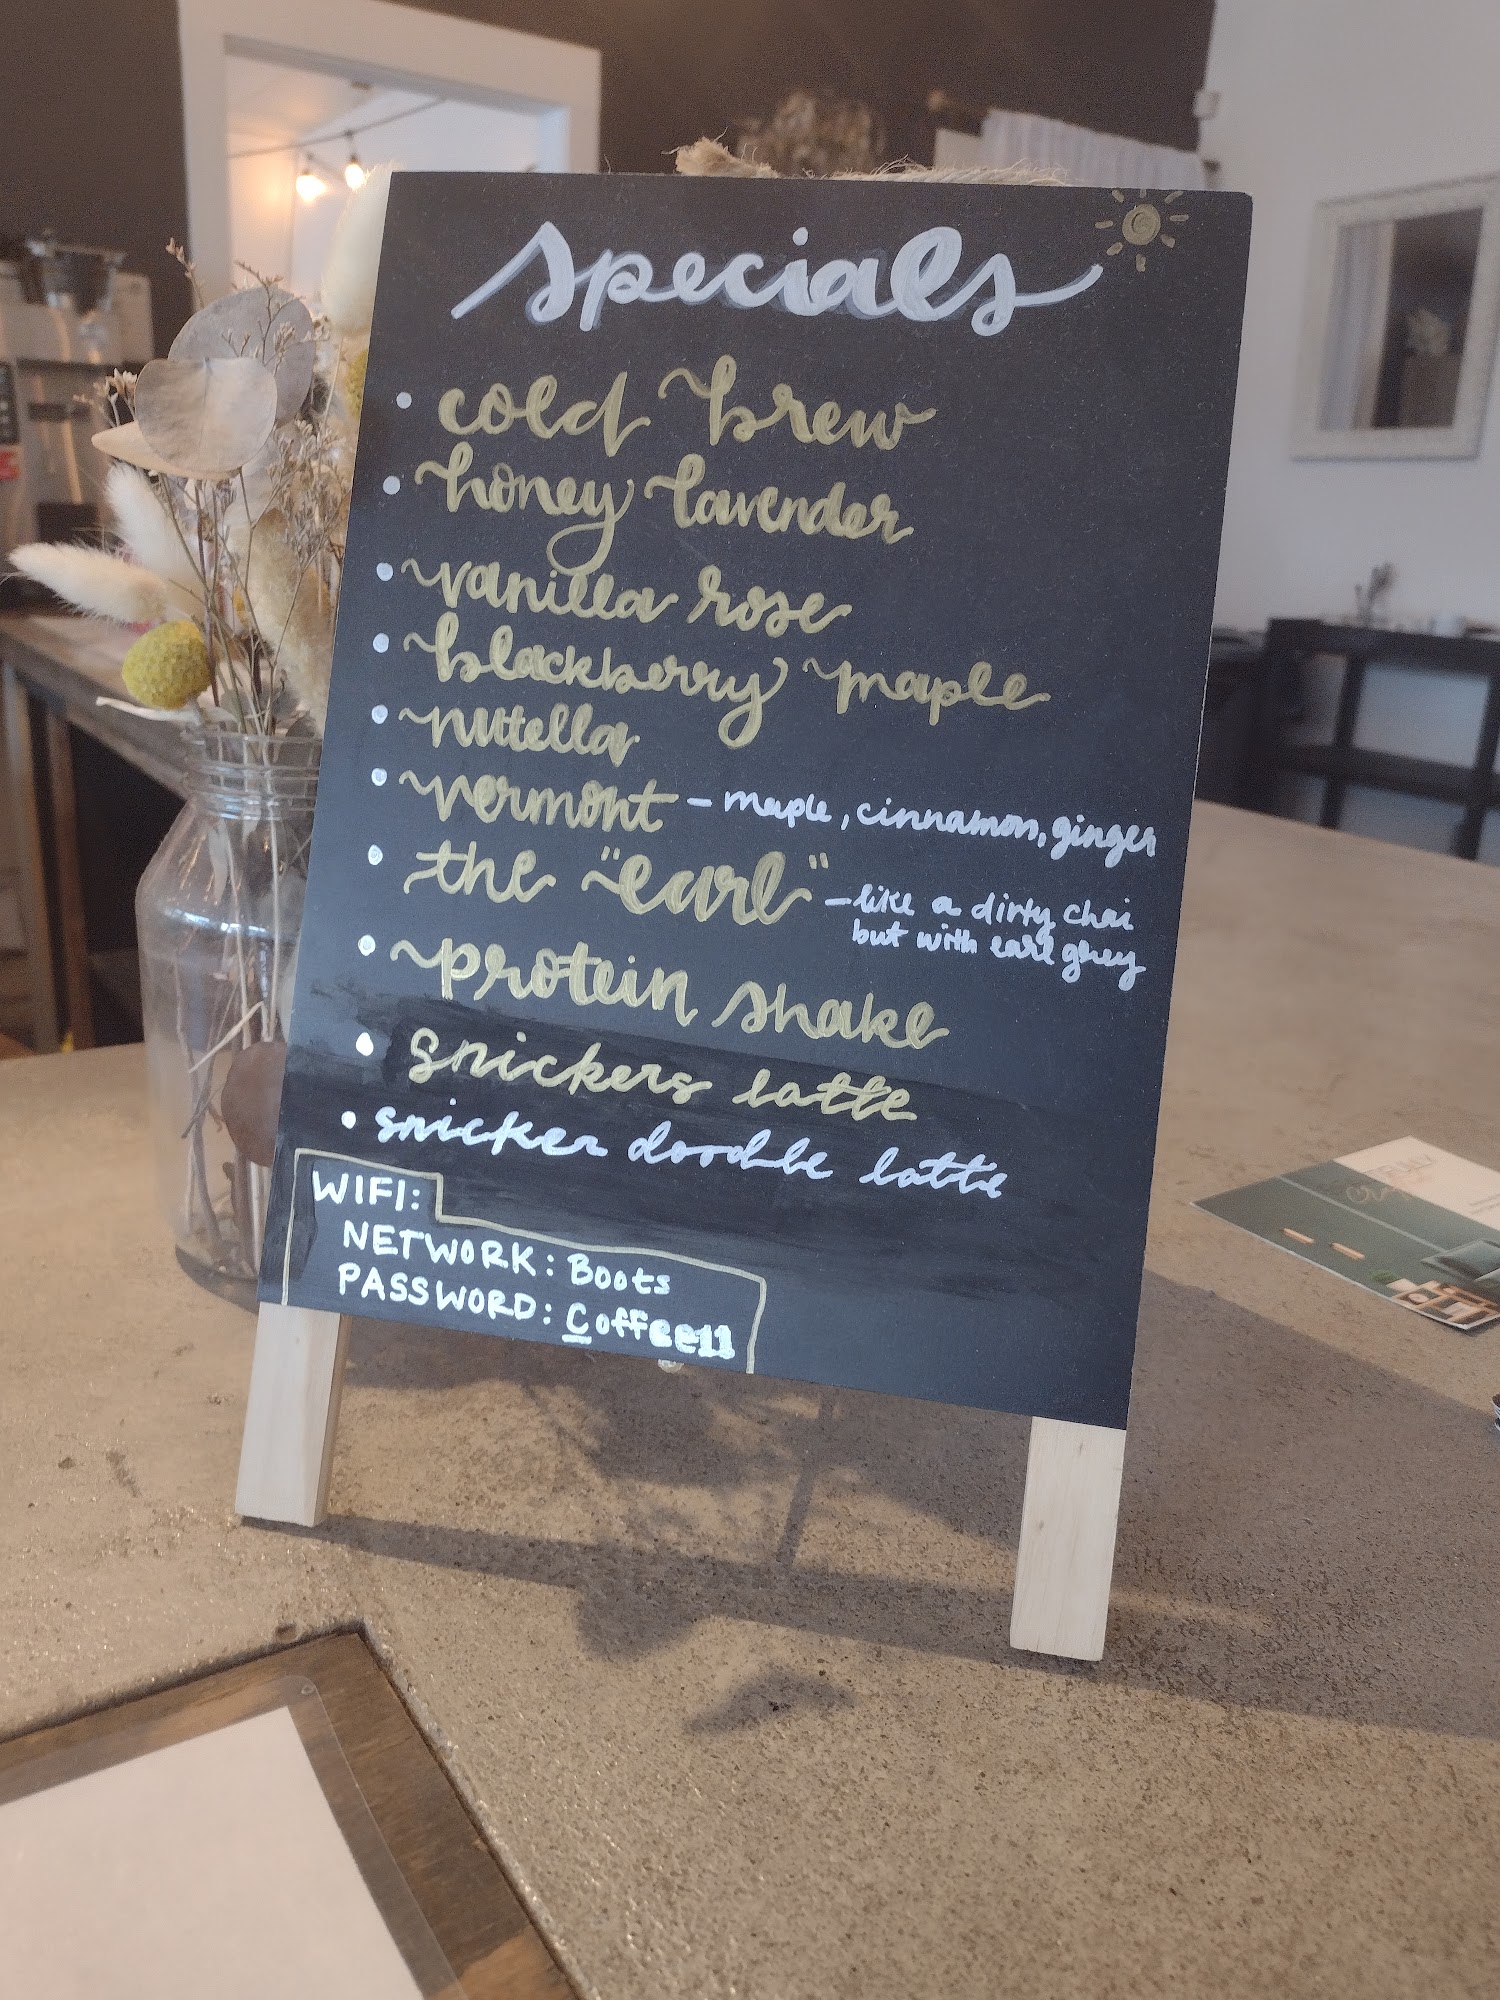 specials
• cold brew
• honey lavender
• vanilla rose
• blackberry maple
• nutella
• vermont - maple, cinnamon, ginger
• the "earl" - like a dirty chai
but with earl grey
• protein shake
• snickers latte
• snicker doodle latte
WIFI:
NETWORK: Boots
PASSWORD: Coffee11